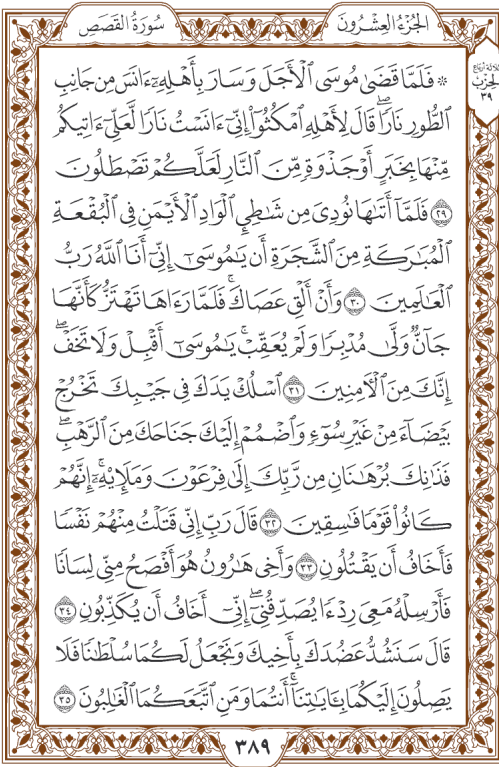 سُورَةُ القَصَصِ
الجُزْءُ العِشْرُونَ
ثلاثة أرباع
الحزب
٣٩
۞ فَلَمَّا قَضَىٰ مُوسَى ٱلْأَجَلَ وَسَارَ بِأَهْلِهِۦٓ ءَانَسَ مِن جَانِبِ
ٱلطُّورِ نَارًاۖ قَالَ لِأَهْلِهِ ٱمْكُثُوٓاْ إِنِّىٓ ءَانَسْتُ نَارًا لَّعَلِّىٓ ءَاتِيكُم
مِّنْهَا بِخَبَرٍ أَوْ جَذْوَةٍ مِّنَ ٱلنَّارِ لَعَلَّكُمْ تَصْطَلُونَ
٢٩ فَلَمَّآ أَتَىٰهَا نُودِىَ مِن شَٰطِئِ ٱلْوَادِ ٱلْأَيْمَنِ فِى ٱلْبُقْعَةِ
ٱلْمُبَٰرَكَةِ مِنَ ٱلشَّجَرَةِ أَن يَٰمُوسَىٰٓ إِنِّىٓ أَنَا ٱللَّهُ رَبُّ
ٱلْعَٰلَمِينَ ٣٠ وَأَنْ أَلْقِ عَصَاكَۚ فَلَمَّا رَءَاهَا تَهْتَزُّ كَأَنَّهَا
جَآنٌّ وَلَّىٰ مُدْبِرًا وَلَمْ يُعَقِّبْۚ يَٰمُوسَىٰٓ أَقْبِلْ وَلَا تَخَفْۖ
إِنَّكَ مِنَ ٱلْأٓمِنِينَ ٣١ ٱسْلُكْ يَدَكَ فِى جَيْبِكَ تَخْرُجْ
بَيْضَآءَ مِنْ غَيْرِ سُوٓءٍ وَٱضْمُمْ إِلَيْكَ جَنَاحَكَ مِنَ ٱلرَّهْبِۖ
فَذَٰنِكَ بُرْهَٰنَانِ مِن رَّبِّكَ إِلَىٰ فِرْعَوْنَ وَمَلَإِيْهِۦٓۚ إِنَّهُمْ
كَانُواْ قَوْمًا فَٰسِقِينَ ٣٢ قَالَ رَبِّ إِنِّى قَتَلْتُ مِنْهُمْ نَفْسًا
فَأَخَافُ أَن يَقْتُلُونِ ٣٣ وَأَخِى هَٰرُونُ هُوَ أَفْصَحُ مِنِّى لِسَانًا
فَأَرْسِلْهُ مَعِىَ رِدْءًا يُصَدِّقُنِىٓۖ إِنِّىٓ أَخَافُ أَن يُكَذِّبُونِ ٣٤
قَالَ سَنَشُدُّ عَضُدَكَ بِأَخِيكَ وَنَجْعَلُ لَكُمَا سُلْطَٰنًا فَلَا
يَصِلُونَ إِلَيْكُمَا بِـَٔايَٰتِنَآۚ أَنتُمَا وَمَنِ ٱتَّبَعَكُمَا ٱلْغَٰلِبُونَ ٣٥
٣٨٩